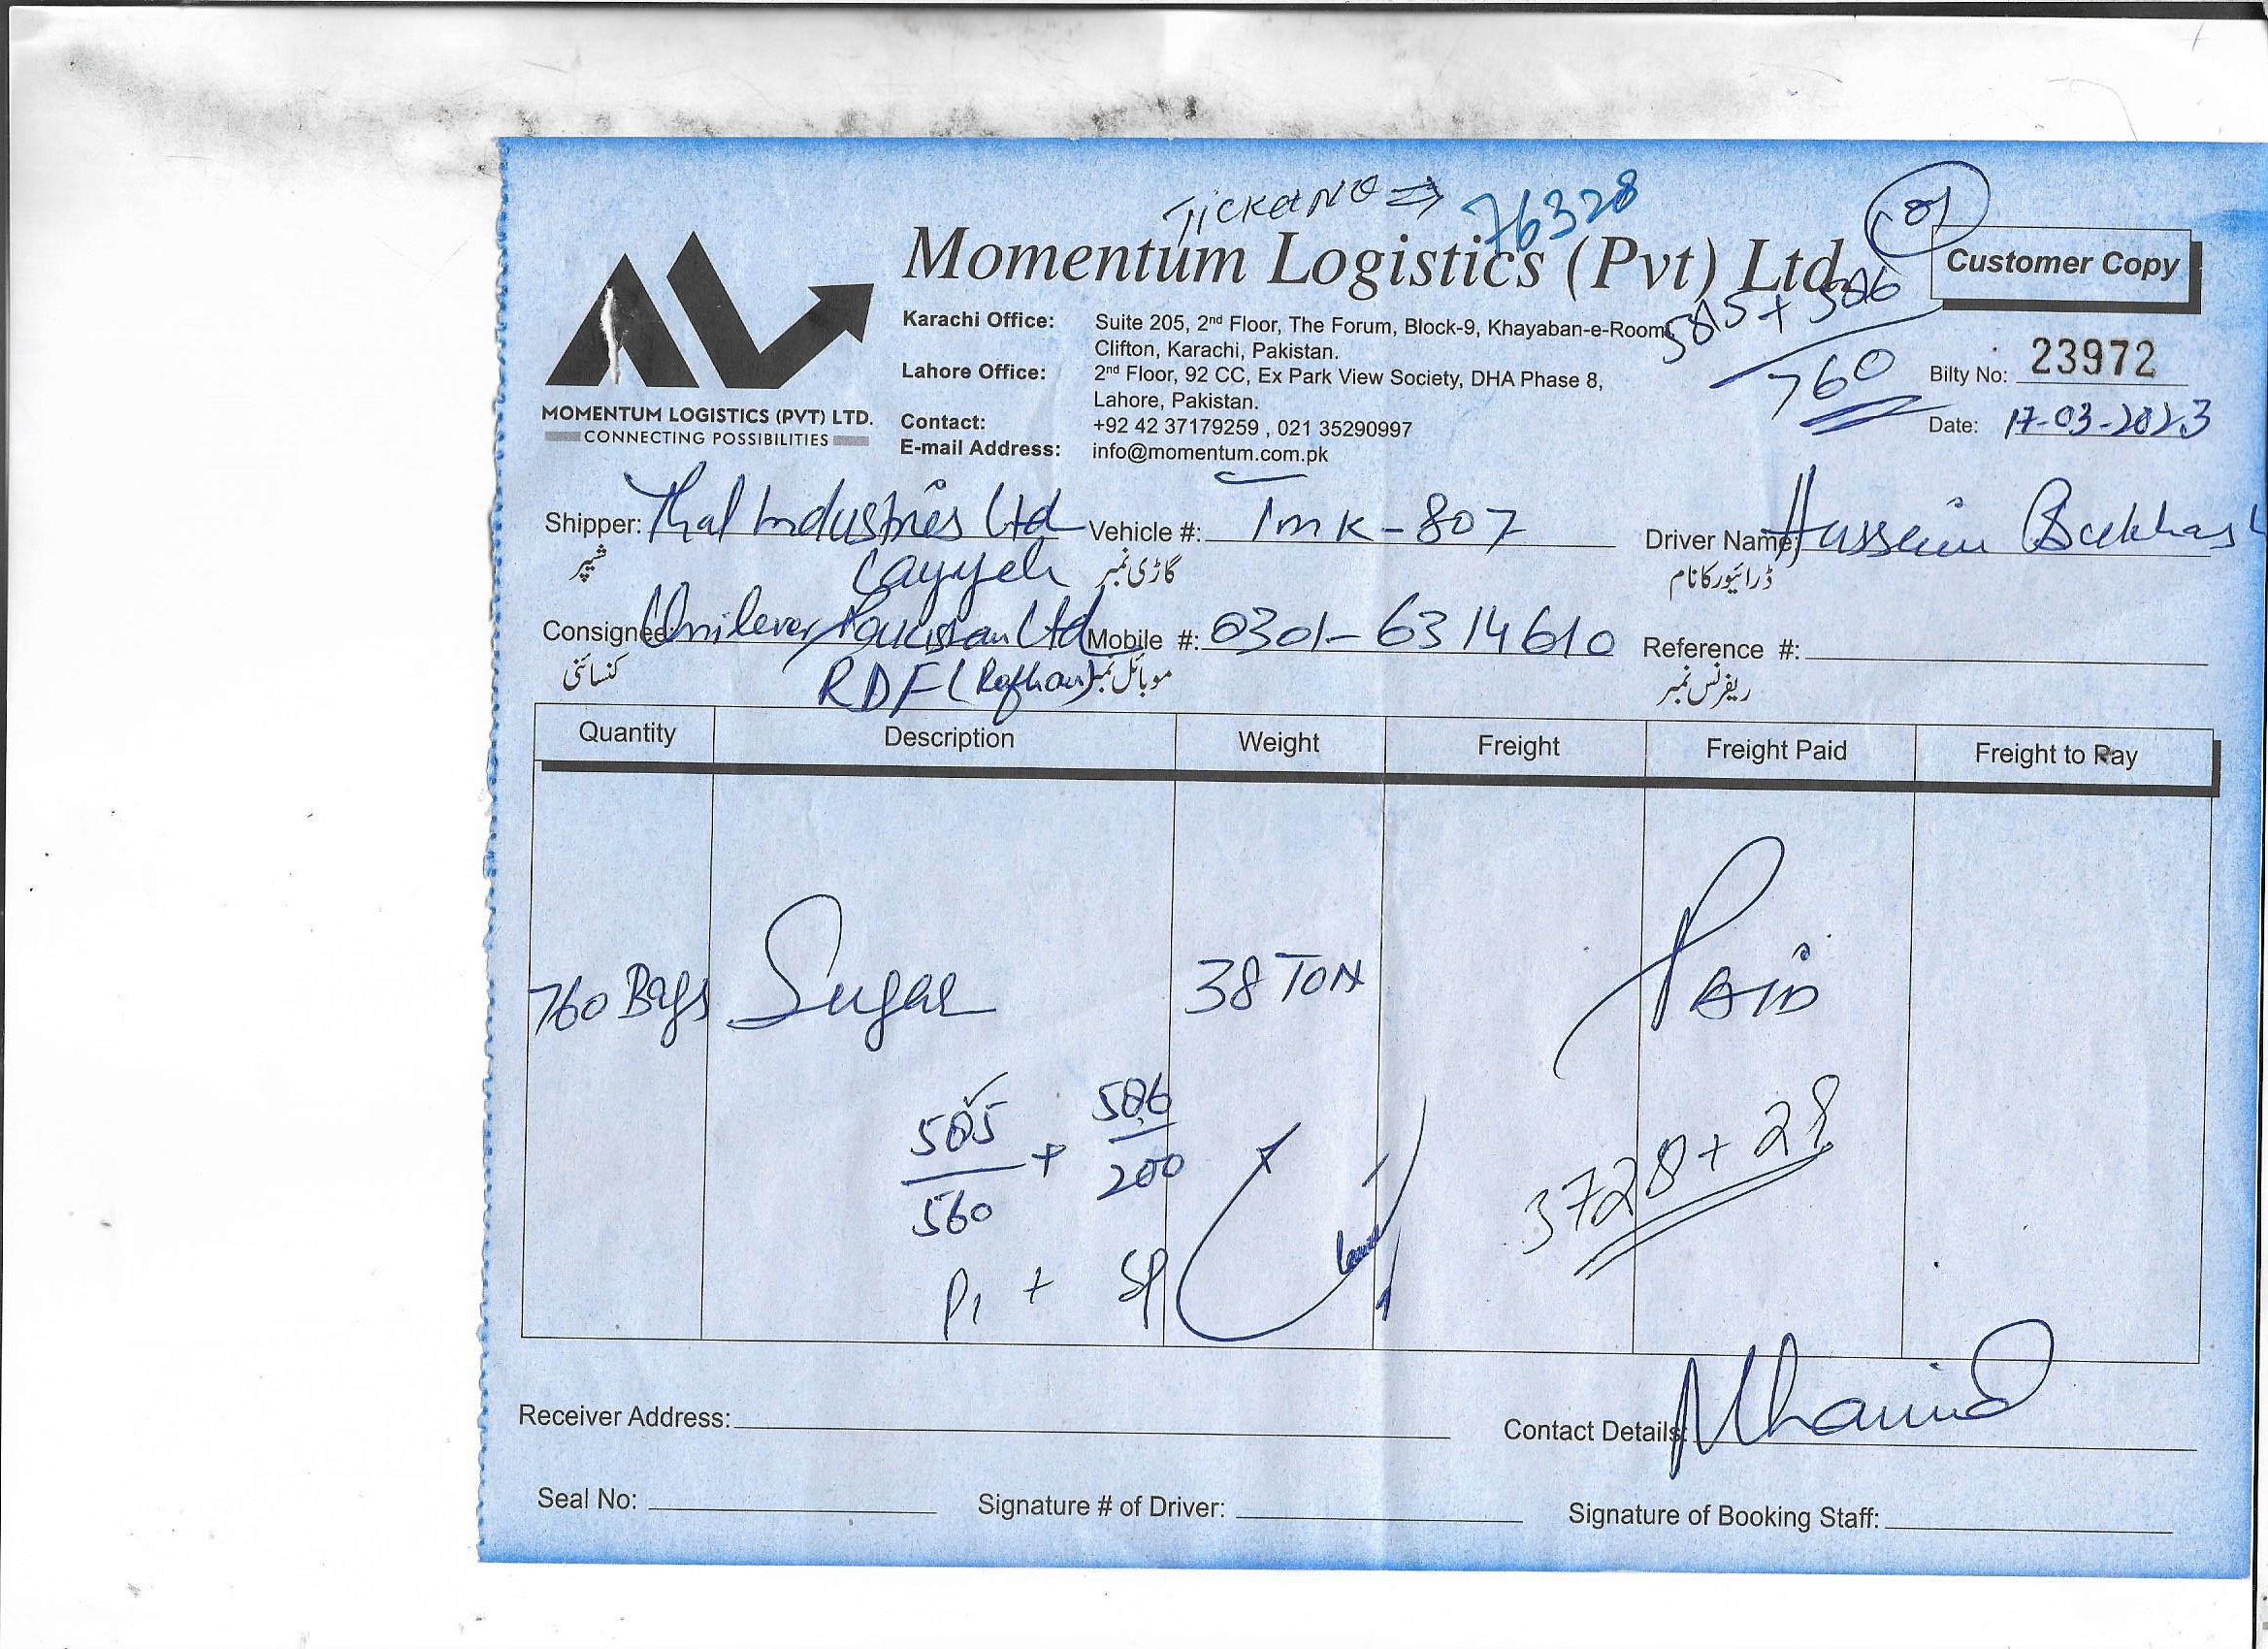 TICKET NO ⇒ 76328
01
Momentum Logistics (Pvt) Ltd.
Customer Copy
505 + 506
760
MOMENTUM LOGISTICS (PVT) LTD.
CONNECTING POSSIBILITIES
Karachi Office: Suite 205, 2nd Floor, The Forum, Block-9, Khayaban-e-Room
Clifton, Karachi, Pakistan.
Lahore Office: 2nd Floor, 92 CC, Ex Park View Society, DHA Phase 8,
Lahore, Pakistan.
Contact: +92 42 37179259 , 021 35290997
E-mail Address: info@momentum.com.pk
Bilty No: 23972
Date: 17-03-2023
Shipper: Thal Industries Ltd Vehicle #: TMK-807 Driver Name: Hussain Bakhash
شیپر Layyah گاڑی نمبر ڈرائیور کا نام
Consignee: Unilever Pakistan Ltd Mobile #: 0301-6314610 Reference #:
کنسائنی RDF (Rafhan) موبائل نمبر ریفرنس نمبر
Quantity Description Weight Freight Freight Paid Freight to Pay
760 Bags Sugar 38 TON PAID
505 + 506
560 200
3728 + 28
P1 + SP
Receiver Address: Contact Details:
Seal No: Signature # of Driver: Signature of Booking Staff: